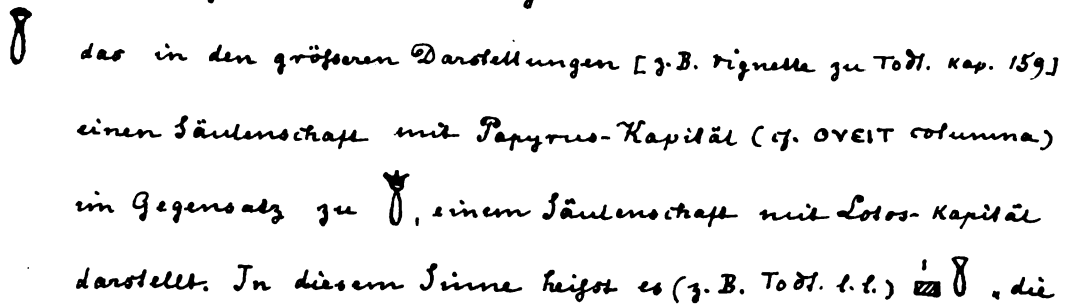 das in den größeren Darstellungen [z.B. Vignette zu Todt. Kap. 159]
einen Säulenschaft mit Papyrus-Kapitäl (cf. ⲞⲨⲈⲒⲦ columna)
im Gegensatz zu 𓇅, einem Säulenschaft mit Lotos-Kapitäl
darstellt. In diesem Sinne heißt es (z.B. Todt. l.l.) die